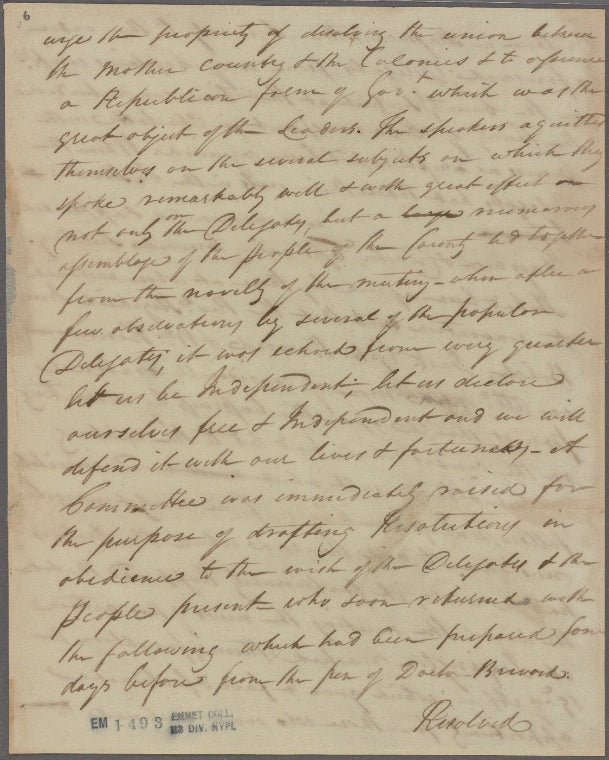 6
urge the propriety of disolving the union between
the Mother Country & the Colonies & to assume
a Republican form of Govt. which was the
great object of the Leaders. The speakers aquitted
themselves on the several subjects on which they
spoke remarkably well & with great effect on
not only on the Delegates, but a large numerous
assemblage of the people of the County led together
from the novelty of the meeting - when after a
few observations by several of the popular
Delegates, it was echoed from every quarter
let us be Independent; let us declare
ourselves free & Independent and we will
defend it with our lives & fortunes - A
Committee was immediately raised for
the purpose of drafting Resolutions in
obedience to the wish of the Delegates & the
People present who soon returned with
the following which had been prepared some
days before from the pen of Doctr Brevard.
Resolved
EM 1493 EMMET COLL.
MS DIV. NYPL